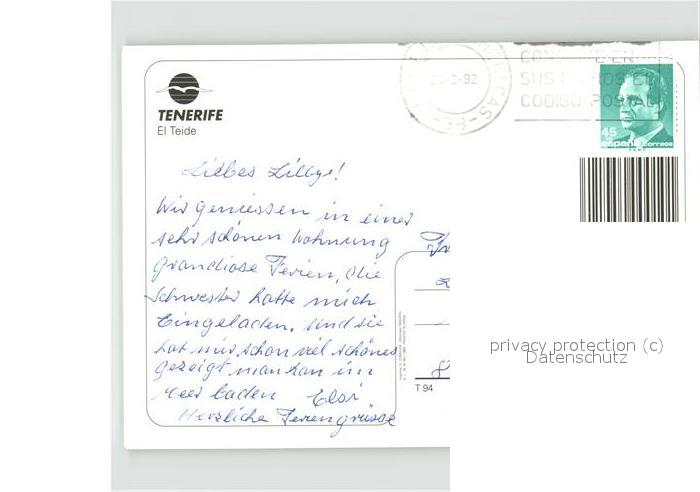 TENERIFE
El Teide
CONS
SUS
CODIGO POSTAL
-3-92
45
españa correos
Liebes Lillyo!
Wir geniessen in einer
sehr schönen Wohnung
grandiose Ferien, die
Schwester hatte mich
Eingeladen. Und sie
hat mir schon viel schönes
gezeigt man kan im
Meer baden Elsi
Herzliche Feriengrüsse
privacy protection (c)
Datenschutz
T 94